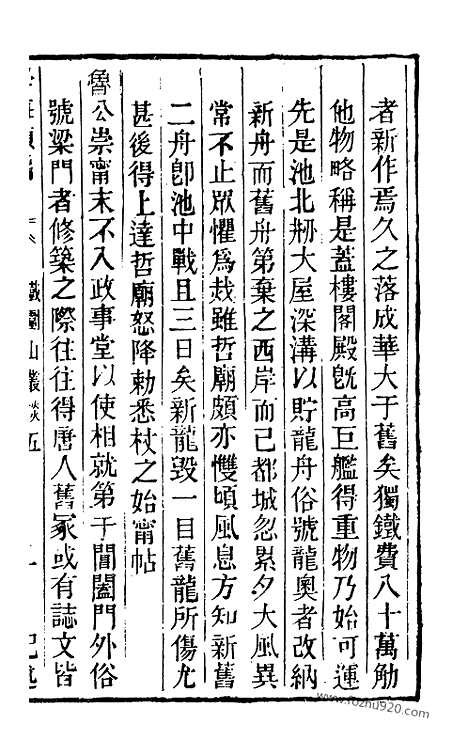 者新作焉久之落成華大于舊矣獨鐵費八十萬觔
他物略稱是蓋樓閣殿旣高巨艦得重物乃始可運
先是池北刱大屋深溝以貯龍舟俗號龍奧者改納
新舟而舊舟第棄之西岸而已都城忽累夕大風異
常不止眾懼爲烖雖哲廟頗亦懼頃風息方知新舊
二舟卽池中戰且三日矣新龍毀一目舊龍所傷尤
甚後得上達哲廟怒降勅悉杖之始甯帖
魯公崇甯末不入政事堂以使相就第于閶闔門外俗
號梁門者修築之際往往得唐人舊冢或有誌文皆
鐵圍山叢談五
www.fozhu920.com